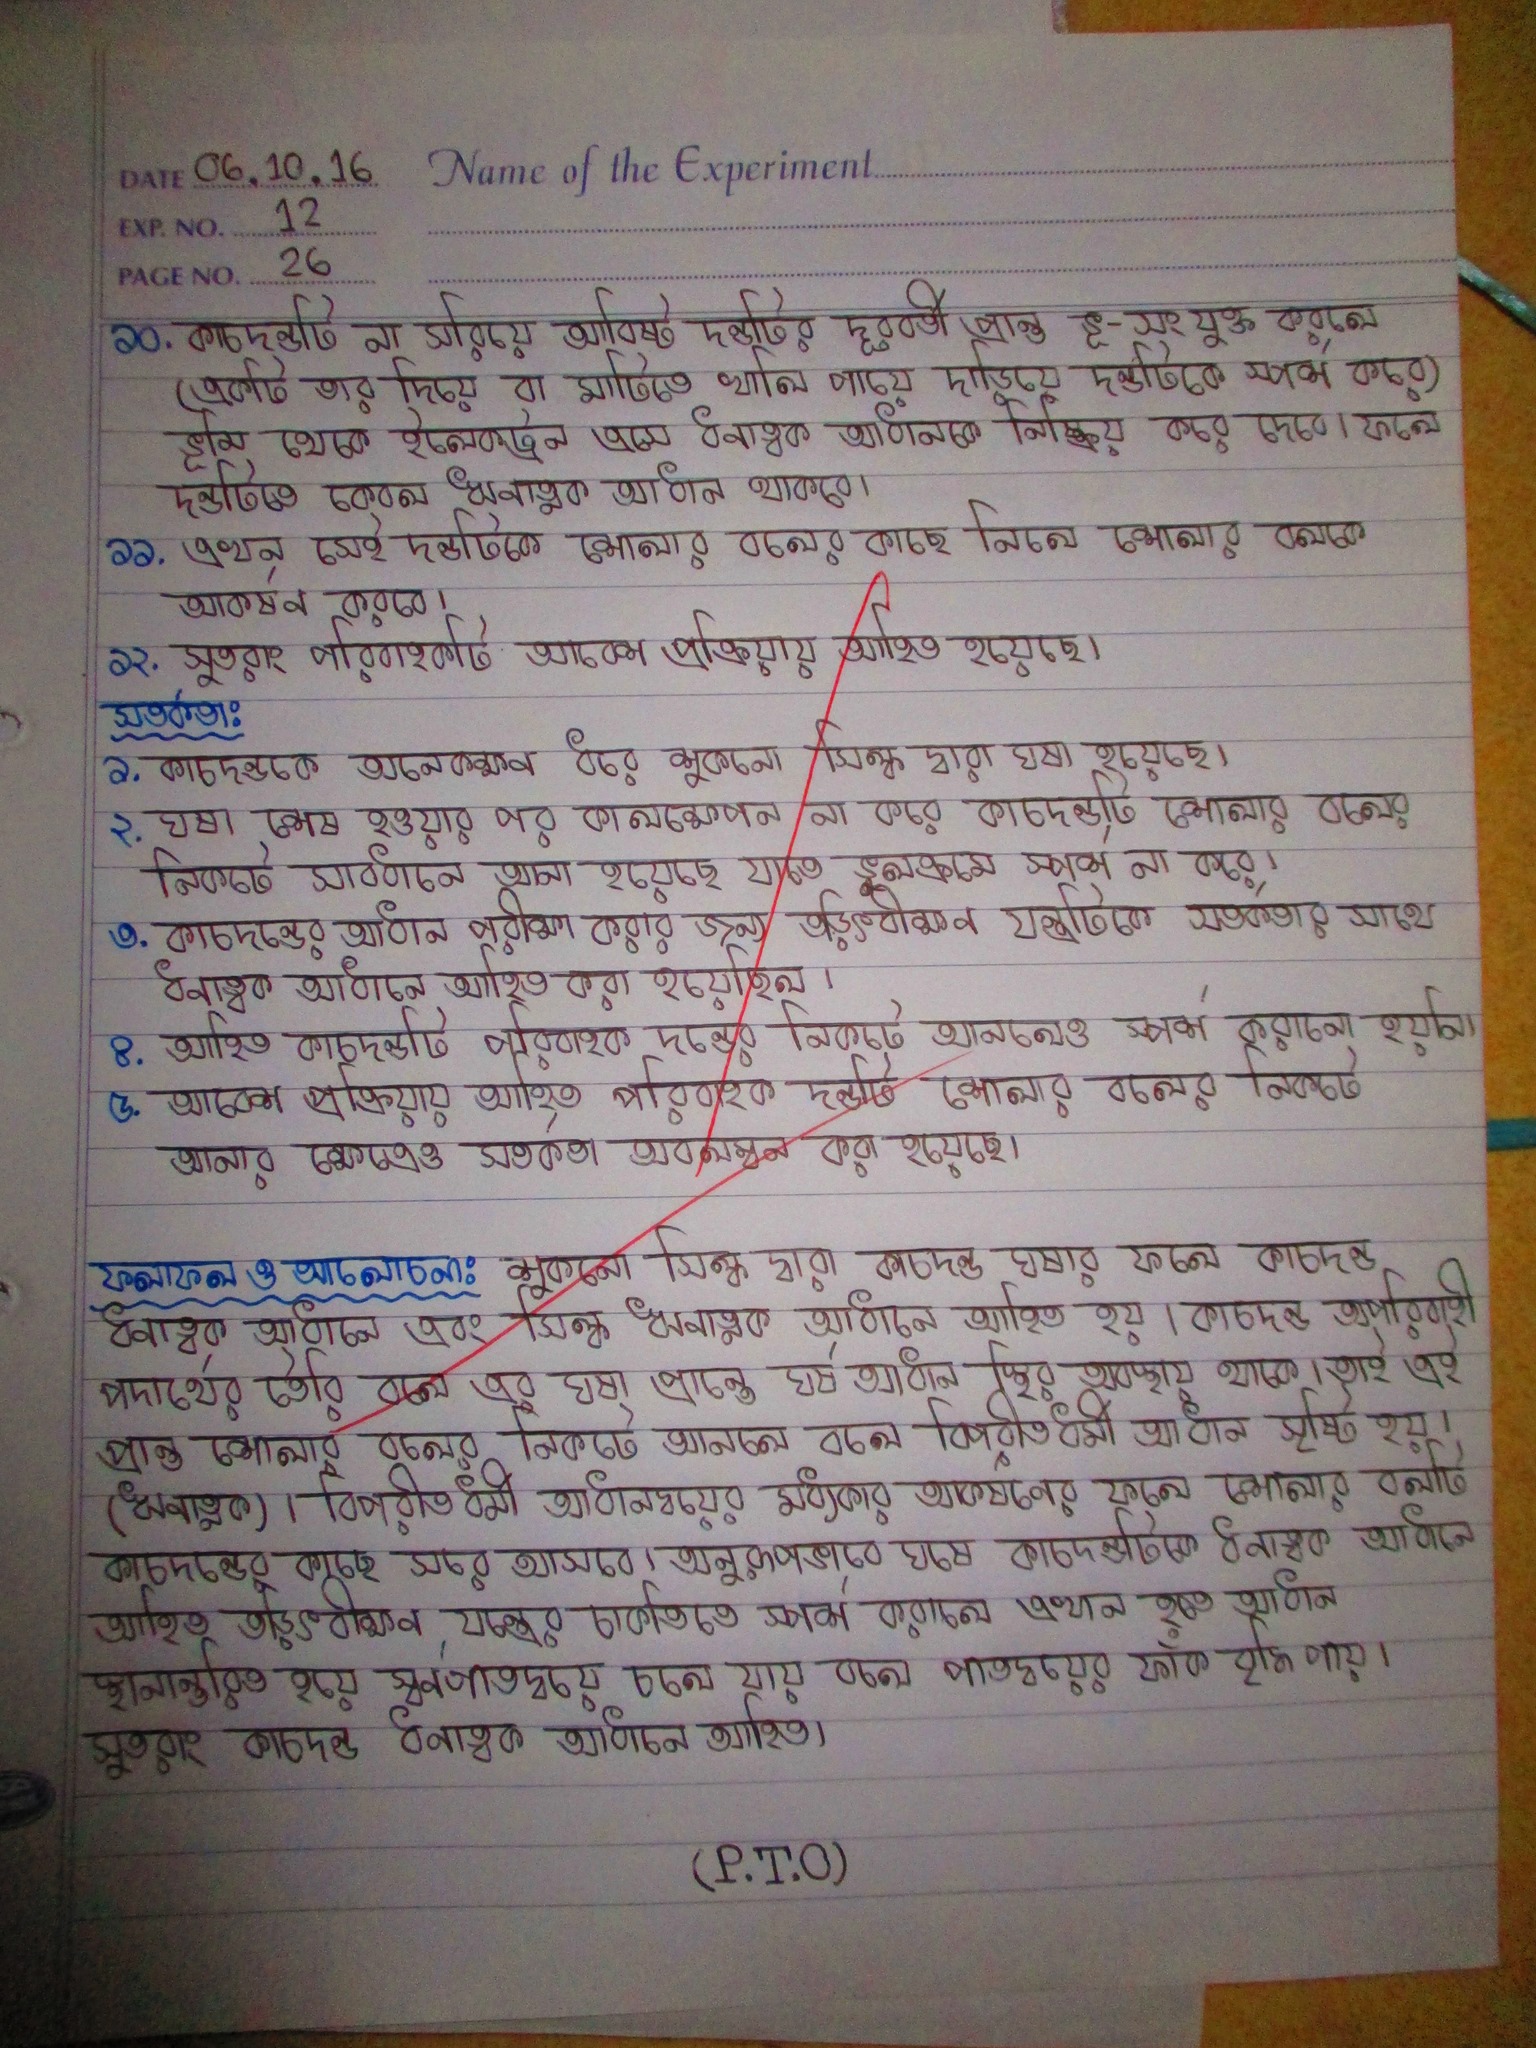 DATE 06.10.16 Name of the Experiment
EXP. NO. 12
PAGE NO. 26
১০. কাচদন্ডটি না সরিয়ে আবিষ্ট দন্ডটির দূরবর্তী প্রান্ত ভূ-সংযুক্ত করলে
(একটি তার দিয়ে বা মাটিতে খালি পায়ে দাড়িয়ে দন্ডটিকে স্পর্শ করে)
ভূমি থেকে ইলেকট্রন এসে ধনাত্বক আধানকে নিষ্ক্রিয় করে দেবে। ফলে
দন্ডটিতে কেবল ঋনাত্নক আধান থাকবে।
১১. এখন সেই দন্ডটিকে শোলার বলের কাছে নিলে শোলার বলকে
আকর্ষন করবে।
১২. সুতরাং পরিবাহকটি আবেশ প্রক্রিয়ায় আহিত হয়েছে।
সতর্কতাঃ
১. কাচদন্ডকে অনেকক্ষন ধরে শুকনো সিল্ক দ্বারা ঘষা হয়েছে।
২. ঘষা শেষ হওয়ার পর কালক্ষেপন না করে কাচদন্ডটি শোলার বলের
নিকটে সাবধানে আনা হয়েছে যাতে ভুলক্রমে স্পর্শ না করে।
৩. কাচদন্ডের আধান পরীক্ষা করার জন্য তড়িৎবীক্ষন যন্ত্রটিকে সতর্কতার সাথে
ধনাত্বক আধানে আহিত করা হয়েছিল।
৪. আহিত কাচদন্ডটি পরিবাহক দন্ডের নিকটে আনলেও স্পর্শ করানো হয়নি।
৫. আবেশ প্রক্রিয়ায় আহিত পরিবাহক দন্ডটি শোলার বলের নিকটে
আনার ক্ষেত্রেও সতর্কতা অবলম্বন করা হয়েছে।
ফলাফল ও আলোচনাঃ শুকনো সিল্ক দ্বারা কাচদন্ড ঘষার ফলে কাচদন্ড
ধনাত্বক আধানে এবং সিল্ক ঋনাত্নক আধানে আহিত হয়। কাচদন্ড অপরিবাহী
পদার্থের তৈরি বলে এর ঘষা প্রান্তে ঘর্ষ আধান স্থির অবস্থায় থাকে। তাই এই
প্রান্ত শোলার বলের নিকটে আনলে বলে বিপরীতধর্মী আধান সৃষ্টি হয়।
(ঋনাত্নক)। বিপরীতধর্মী আধানদ্বয়ের মধ্যকার আকর্ষণের ফলে শোলার বলটি
কাচদন্ডের কাছে সরে আসবে। অনুরূপভাবে ঘষে কাচদন্ডটিকে ধনাত্বক আধানে
আহিত তড়িৎবীক্ষন যন্ত্রের চাকতিতে স্পর্শ করালে এখান হতে আধান
স্থানান্তরিত হয়ে স্বর্নপাতদ্বয়ে চলে যায় বলে পাতদ্বয়ের ফাঁক বৃদ্ধি পায়।
সুতরাং কাচদন্ড ধনাত্বক আধানে আহিত।
(P.T.O)